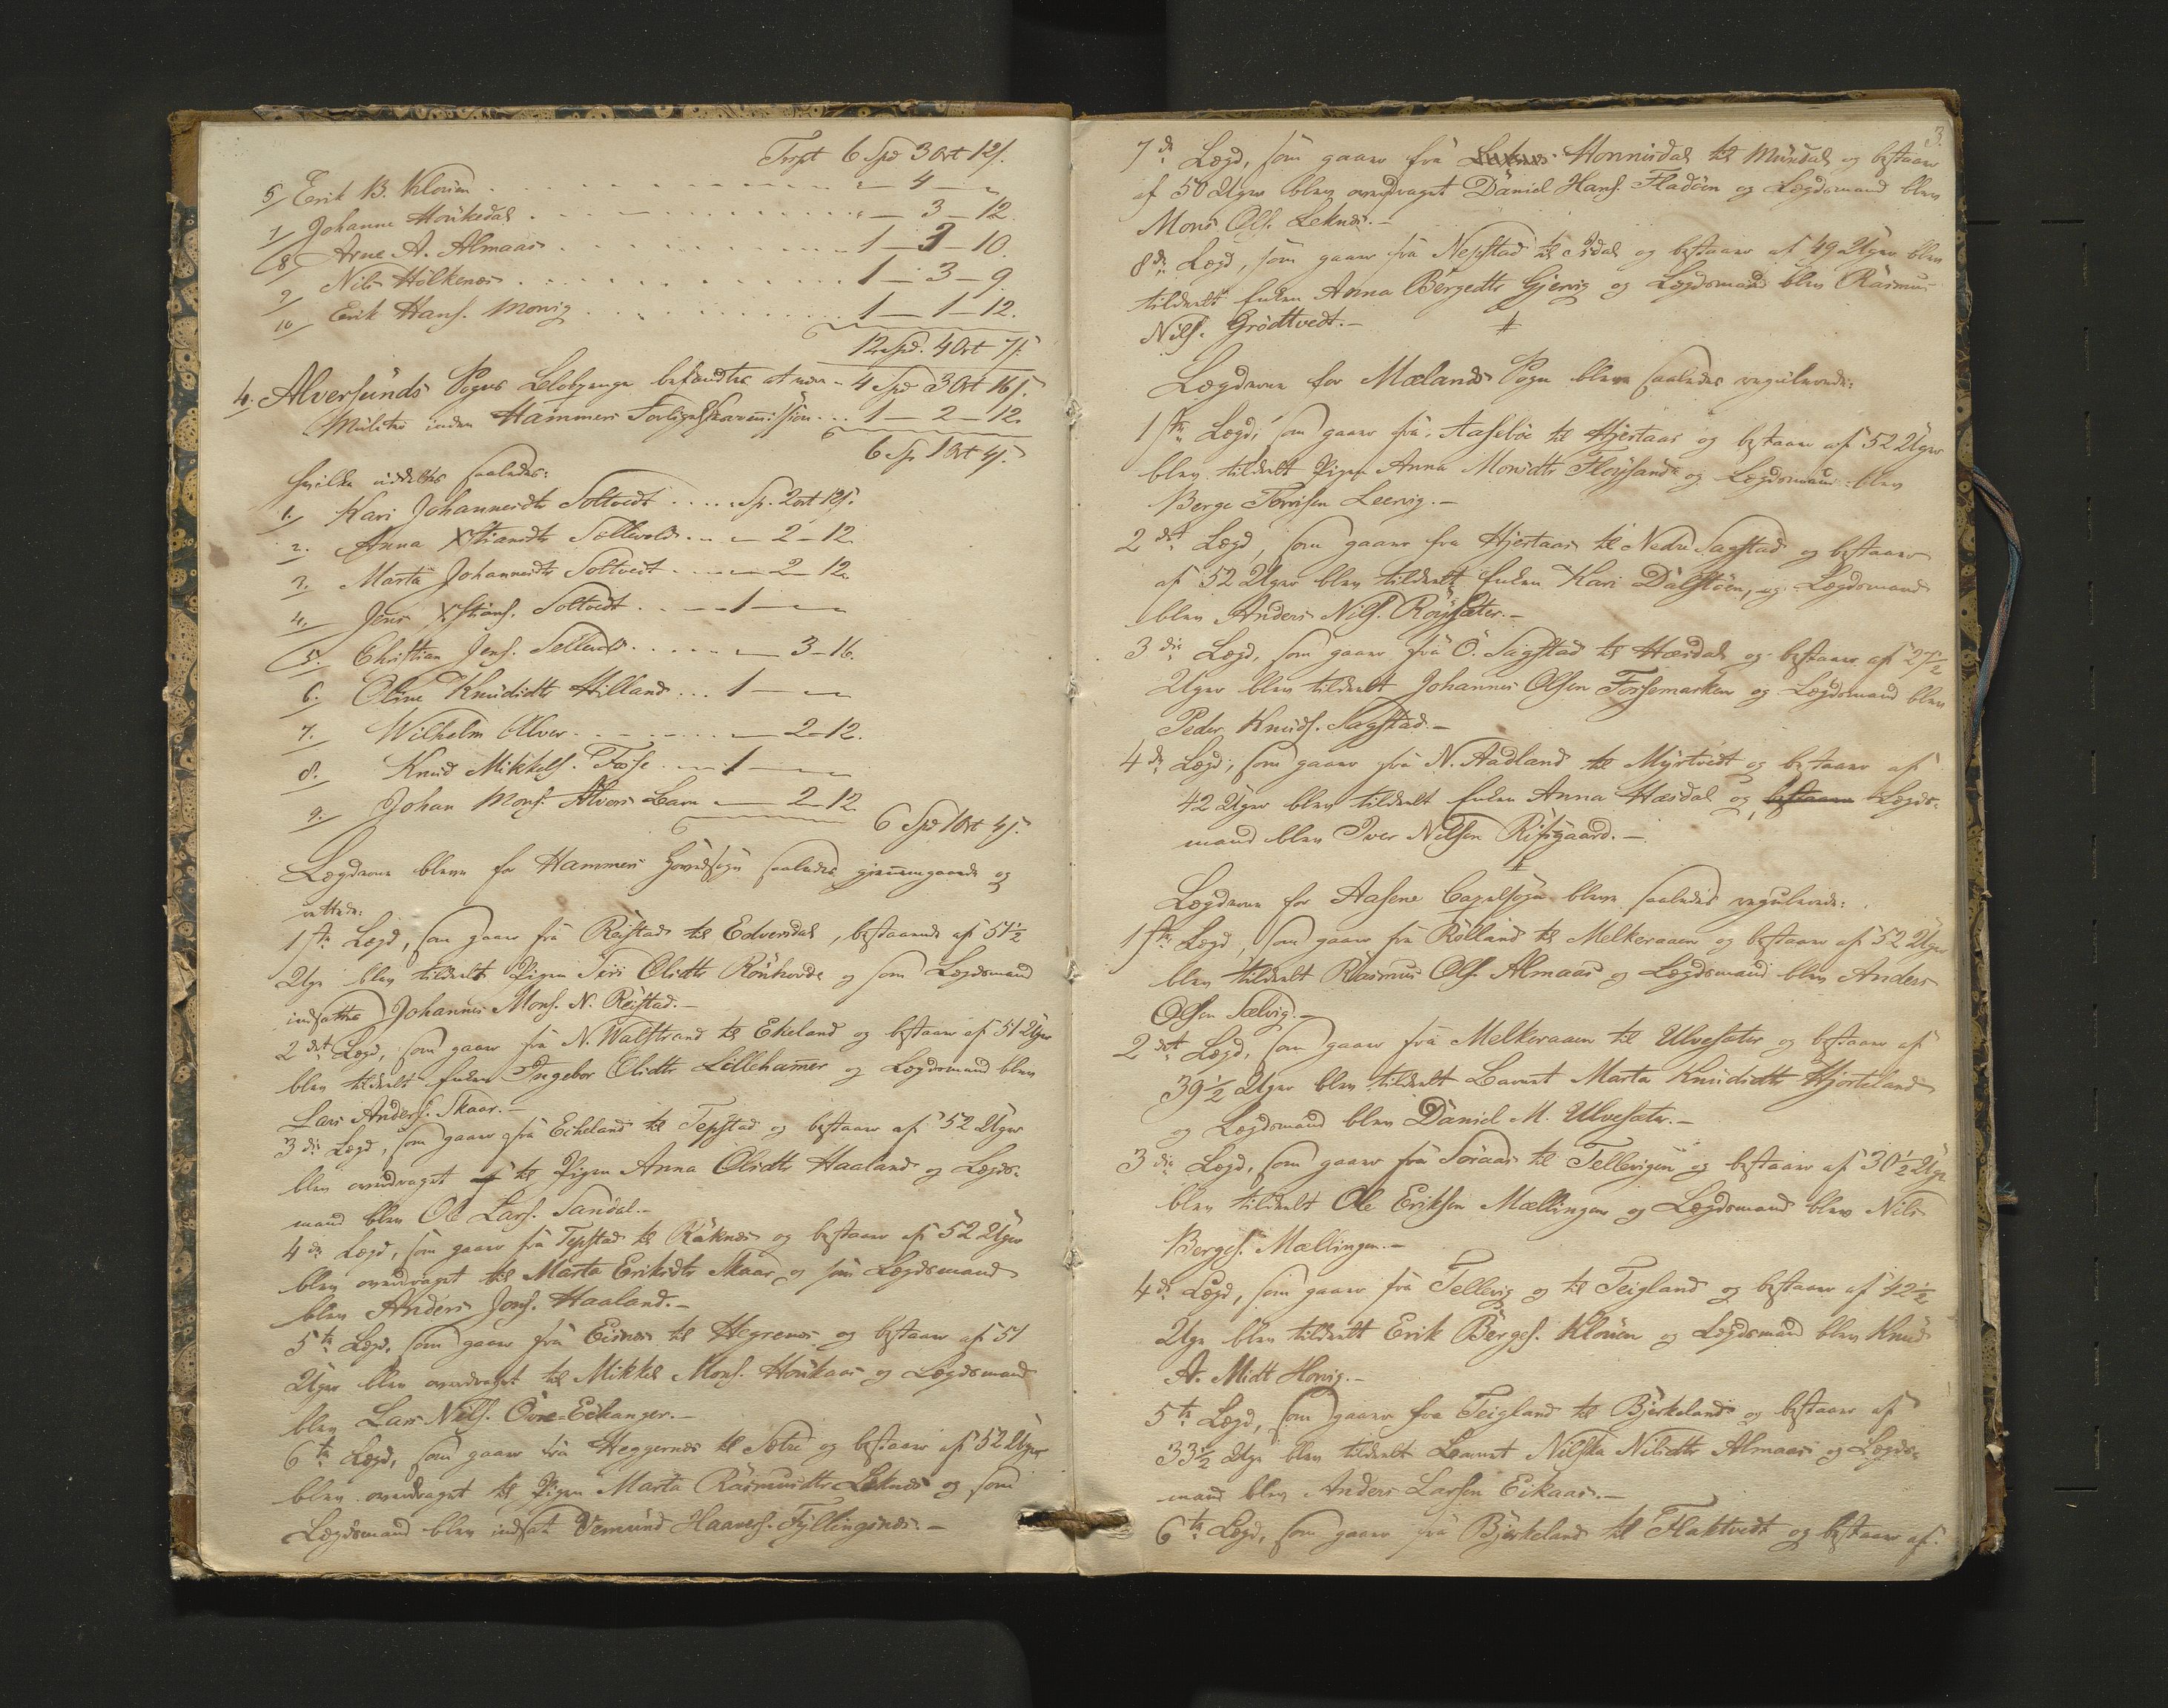 Trspt 6 Spd 3 Ort 12 s.
5/ Erik B. Klouen . . . . . " — 4 — "
7/ Johanne Houkedal . . . . . " — 3 — 12.
8/ Arne A. Almaas . . . . . 1 — 3 — 10.
9/ Nils Hölkenes . . . . . 1 — 3 — 9.
10/ Erik Hans. Monvig . . . . . 1 — 1 — 12.
12 Spd. 4 Ort 7 s.
4. Alversunds Sogns befandtes at være - 4 Spd 3 Ort 16 s.
Mulcter inden Hammers Forligelsescommission . . . 1 — 2 — 12.
6 Sp 1 Ort 4 s.
hvilke uddeltes saaledes:
1./ Kari Johannesdtr Soltvedt . . . . " Sp. 2 ort 12 s.
2. Anna Xstiansdtr Sellevold . . — " — 2 — 12.
3. Marta Johannesdtr Soltvedt . . . — " — 2 — 12.
4./ Jens Xstians. Soltvedt . . — 1 — " — "
5. Christian Jens. Sellevold . . . . . — 3 — 16.
6. Oline Knudsdtr Hilland . . . 1 — " — "
7. Wilhelm Alver . . . . . . — 2 — 12.
8. Knud Mikkels. Fosse . . — 1 — " — "
9. Johan Mons. Alvers Barn — 2 — 12.
6 Spd 1 Ort 4 s.
Lægderne bleve for Hammers Hovedsogn saaledes gjennemgaaede og
rettede:
1ste Lægd, som gaaer fra Reistad til Edversdal, bestaaende af 51½
Uge blev tildelt Pigen Siri Olsdtr Rönhovde og som Lægdsmand
indsattes Johannes Mons. N. Reistad. —
2det Lægd, som gaaer fra N. Walstrand til Ekeland og bestaaer af 51 Uger
blev tildelt Enken Ingebor Olsdtr Lillehamer og Lægdsmand blev
Lars Anders. Skaar. —
3die Lægd, som gaaer fra Eikeland til Tepstad og bestaaer af 52 Uger
blev overdraget til Pigen Anna Olsdtr Haaland og Lægds-
mand blev Ole Lars. Sandal. —
4de Lægd, som gaaer fra Tepstad til Röknes og bestaaer af 52 Uger
blev overdraget til Marta Eriksdtr Skaar og som Lægdsmand
blev Anders Jons. Haaland. —
5te Lægd, som gaaer fra Eisnes til Hegrenes og bestaaer af 51
Uger blev overdraget til Mikkel Mons. Houkaas og Lægdsmand
blev Lars Nils. Övre-Eikanger. —
6te Lægd, som gaaer fra Heggernes til Sætre og bestaaer af 52 Uger
blev overdraget til Pigen Marta Rasmusdtr Leknes og som
Lægdsmand blev indsat Vemund Haavers. Fyllingsnes. —
3.
7de Lægd, som gaaer fra Leknes Honnisdal til Mundal og bestaaer
af 50 Uger blev overdraget Daniel Hans. Fladöen og Lægdsmand blev
Mons Ols. Leknes. —
8de Lægd, som gaaer fra Nepstad til Isdal og bestaaer af 49 Uger blev
tildeelt Enken Anna Bergedtr Gjervig og Lægdsmand blev Rasmus
Nils. Grödtvedt. —
Lægderne for Mælands Sogn bleve saaledes regulerede:
1ste Lægd, som gaaer fra Aasebø til Hjertaas og bestaaer af 52 Uger
blev tildelt Pigen Anna Monsdtr Flöysand og Lægdsmand blev
Berge Torrisen Leervig. —
2det Lægd, som gaaer fra Hjertaas til Nedre Sagstad og bestaaer
af 52 Uger blev tildelt Enken Kari Dalstöen, og Lægdsmand
blev Anders Nils. Röysæter. —
3die Lægd, som gaaer fra Ö. Sagstad til Hæsdal og bestaaer af 27½
Uger blev tildelt Johannes Olsen Fossemarken og Lægdsmand blev
Peder Knuds. Sagstad. —
4de Lægd, som gaaer fra N. Aadland til Myrtvedt og bestaaer af
42 Uger blev tildelt Enken Anna Hæsdal og bestaaer Lægds-
mand blev Iver Nilsen Risgaard. —
Lægderne for Aasene Capelsogn bleve saaledes regulerede:
1ste Lægd, som gaaer fra Rölland til Melkeraaen og bestaaer af 52 Uger
blev tildelt Rasmus Ols. Almaas og Lægdsmand blev Anders
Olsen Sælvig. —
2det Lægd, som gaaer fra Melkeraaen til Ulvesæter og bestaaer af
39½ Uger blev tildelt Barnet Marta Knudsdtr Hjorteland
og Lægdsmand blev Daniel M. Ulvesæter. —
3die Lægd, som gaaer fra Soraas til Tellevigen og bestaaer af 30½ Uge
blev tildelt Ole Eriksen Mællingen og Lægdsmand blev Nils
Berges. Mællingen. —
4de Lægd, som gaaer fra Tellevig og til Teigland og bestaaer af 42½
Uge blev tildeelt Erik Berges. Klouen og Lægdsmand blev Knud
A. Midt Horvig. —
5te Lægd, som gaaer fra Teigland til Bjerkeland og bestaaer af
33½ Uge blev tildelt Barnet Nilska Nilsdtr Almaas og Lægds-
mand blev Anders Larsen Eikaas. —
6te Lægd, som gaaer fra Bjerkeland til Flaktvedt og bestaaer af